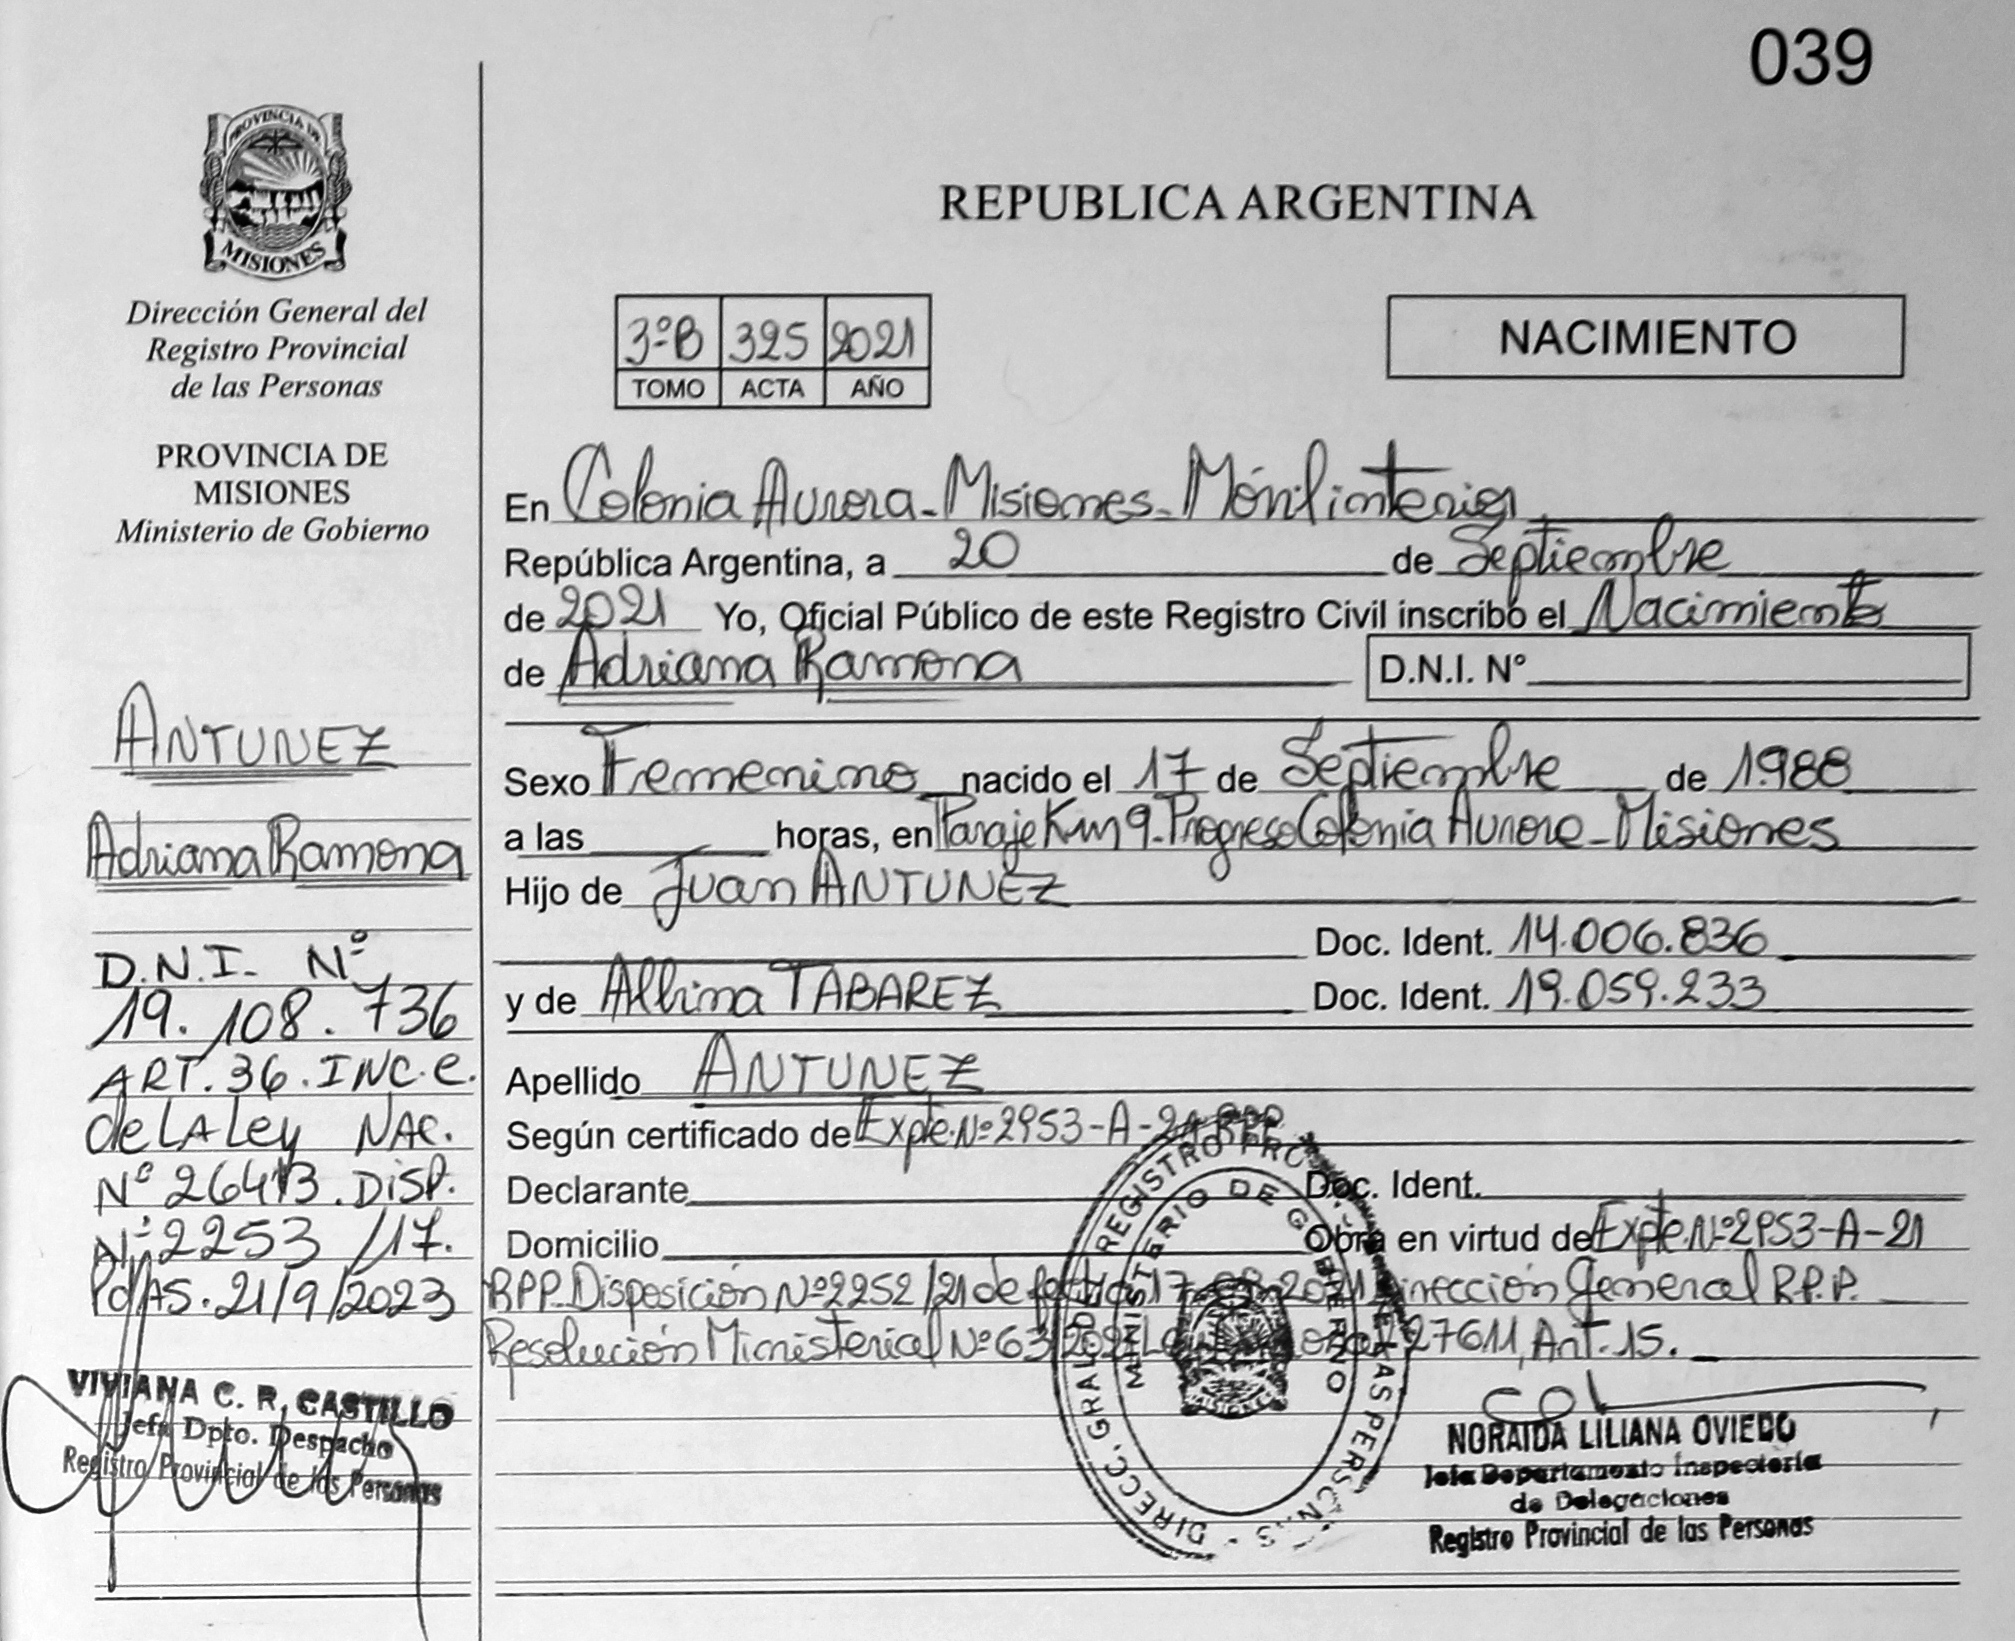 039
PROVINCIA DE
MISIONES
Dirección General del
Registro Provincial
de las Personas
PROVINCIA DE
MISIONES
Ministerio de Gobierno
ANTUNEZ
Adriana Ramona
D.N.I. Nº
19.108.736
ART.36.INC.e.
de LA Ley NAC.
Nº 26413.DISP.
Nº 2253/17.
PdAS.21/9/2023
VIVIANA C. R. CASTILLO
Jefa Dpto. Despacho
Registro Provincial de las Personas
REPUBLICA ARGENTINA
3ºB 325 2021
TOMO ACTA AÑO
NACIMIENTO
En Colonia Aurora-Misiones-Móvil interior
República Argentina, a 20 de Septiembre
de 2021 Yo, Oficial Público de este Registro Civil inscribo el Nacimiento
de Adriana Ramona D.N.I. N°
Sexo Femenino nacido el 17 de Septiembre de 1.988
a las horas, en Paraje Km 9-Progreso Colonia Aurora-Misiones
Hijo de Juan ANTUNEZ
Doc. Ident. 14.006.836
y de Albina TABAREZ Doc. Ident. 19.059.233
Apellido ANTUNEZ
Según certificado de Expte.Nº2953-A-21 RPP
Declarante Doc. Ident.
Domicilio Obra en virtud de Expte.Nº2953-A-21
RPP.Disposición Nº2252/21 de fecha 17-09-2021 Dirección General R.P.P.
Resolución Ministerial Nº63/2021 27611, Art.15.
DIRECC. GRAL. DEL REGISTRO PROVINCIAL DE LAS PERSONAS
MINISTERIO DE GOBIERNO
MISIONES
NORAIDA LILIANA OVIEDO
Jefa Departamento Inspectoría
de Delegaciones
Registro Provincial de las Personas